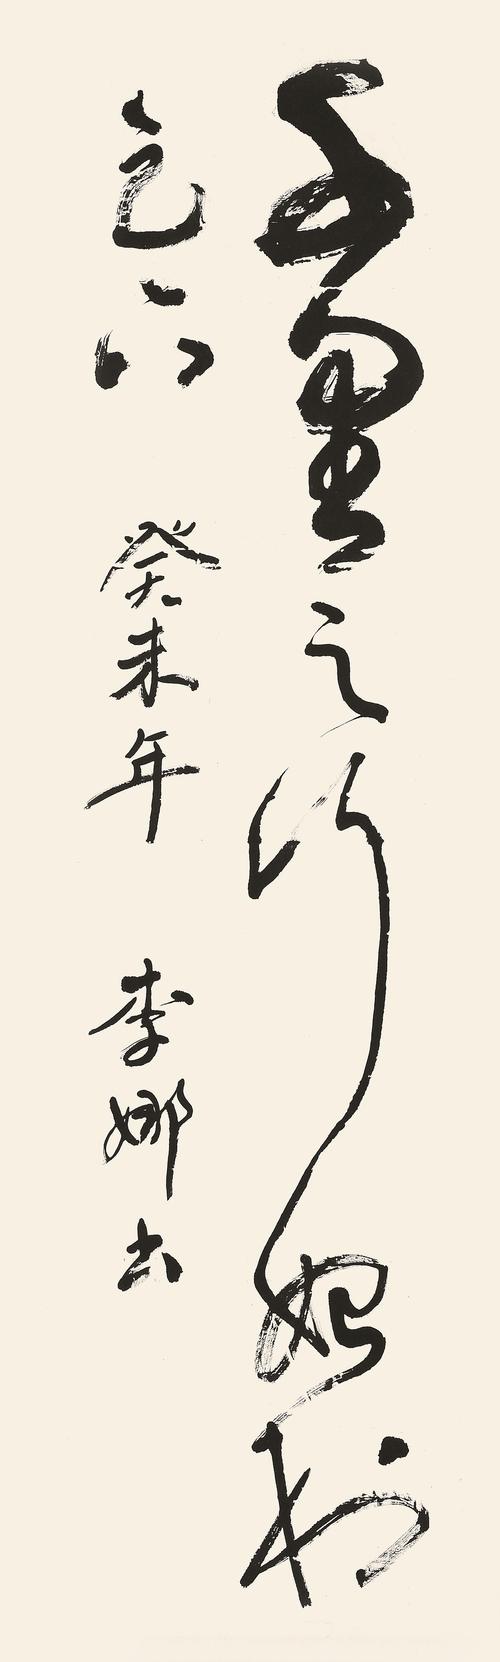 千里之行始於
足下 癸未年 李娜书